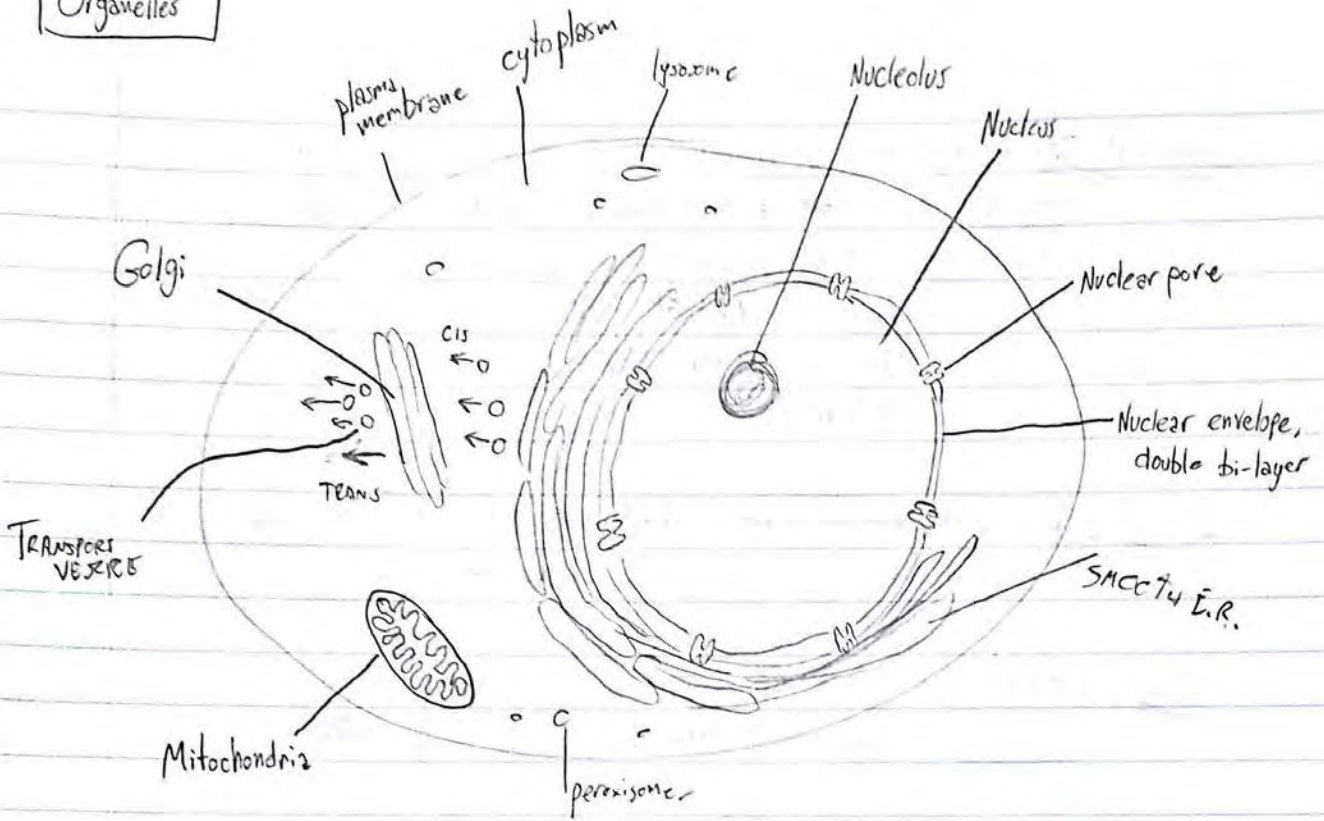 Organelles
plasma
membrane
cytoplasm
lysosome
Nucleolus
Nucleus
Nuclear pore
Nuclear envelope,
double bi-layer
E.R.
Golgi
CIS
TRANS
Mitochondria
peroxisome